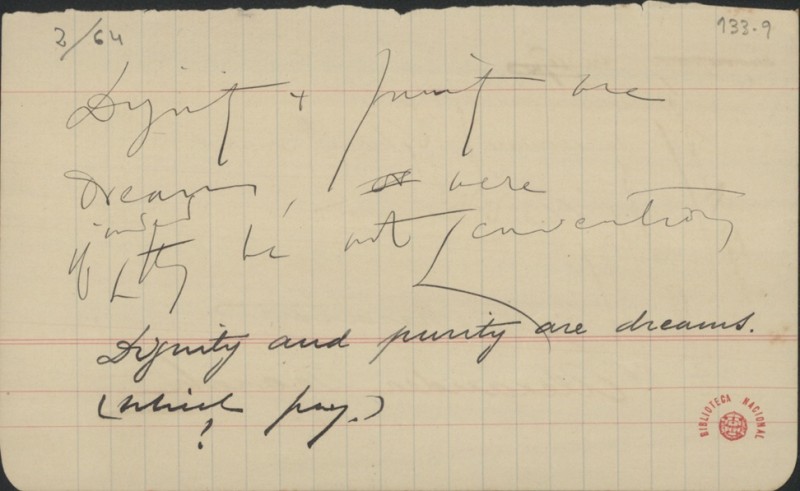 2/64
133-9
Dignity + purity are
dreams, or mere
if indeed they be not conventions
Dignity and purity are dreams.
(which pay.)
!
BIBLIOTECA NACIONAL